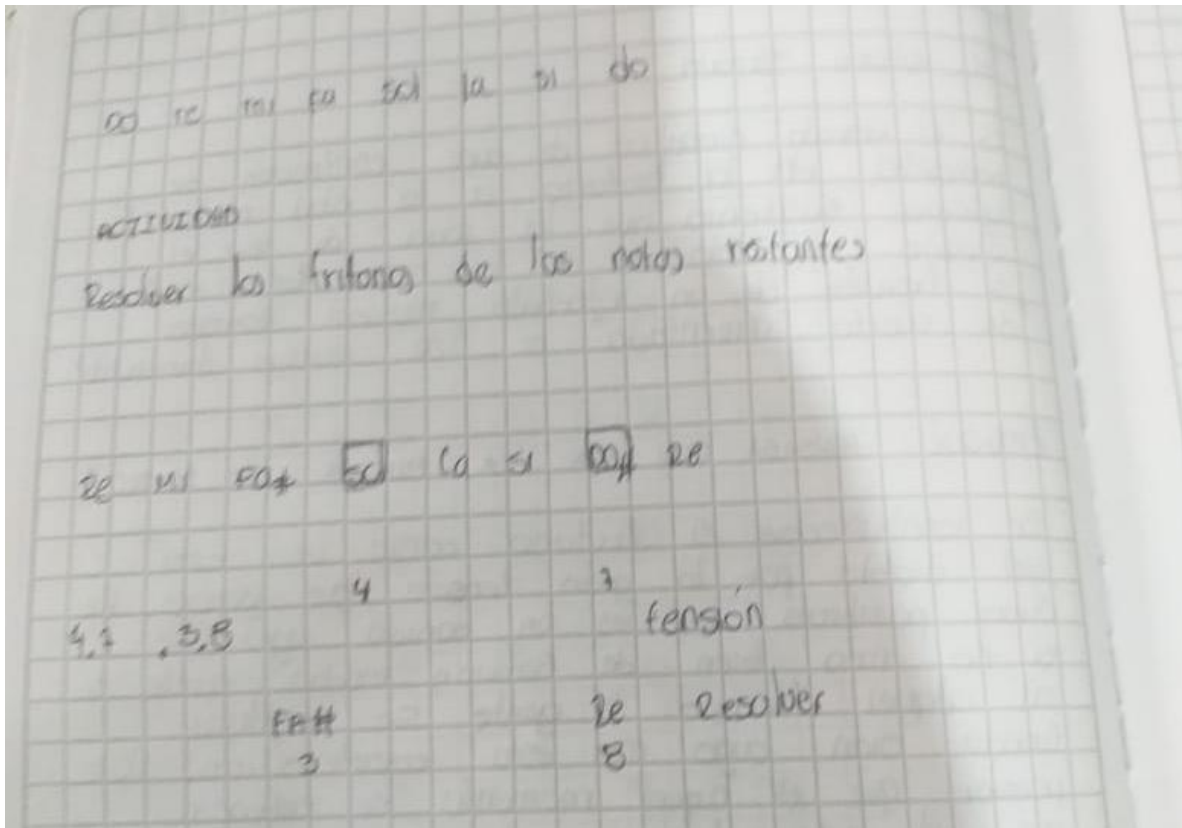 do re mi fa sol la si do
ACTIVIDAD
Resolver los tritonos de las notas restantes
Re Mi FA# Sol La si DO# Re
4 7
4,7 , 3,8 tensión
FA# Re Resolver
3 8